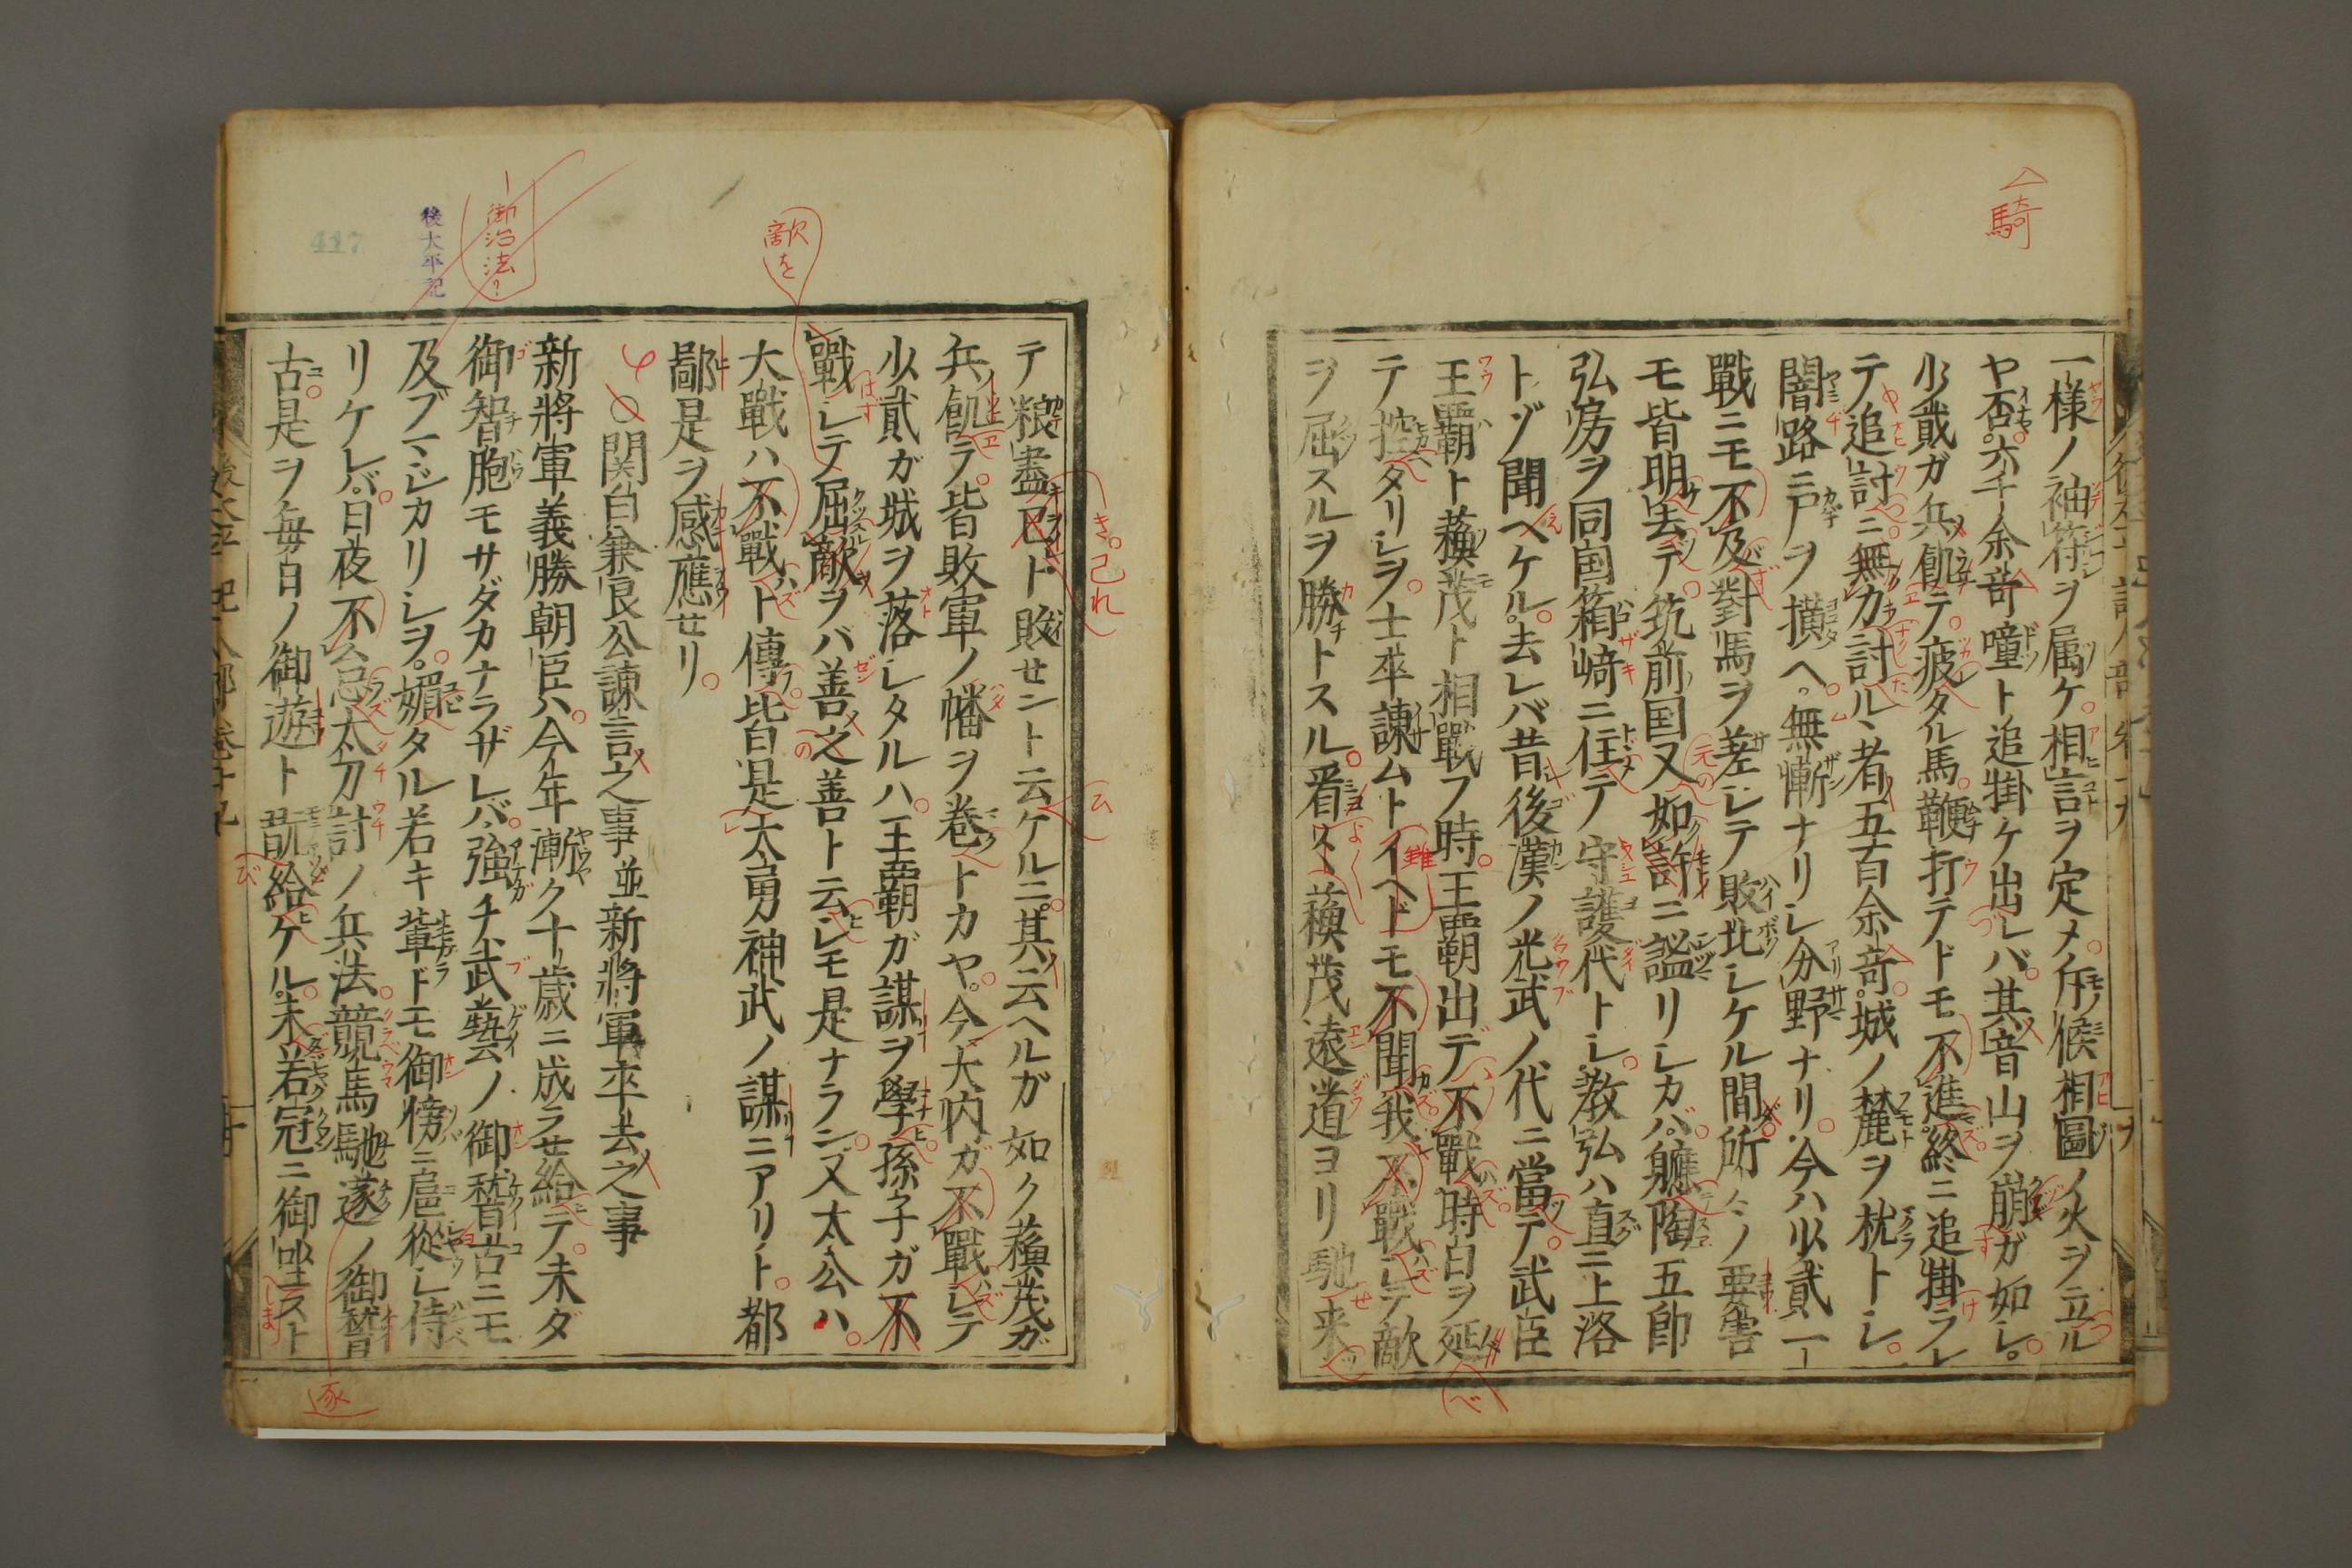 一様ノ袖符ヲ属ケ相言ヲ定メ斥候相圖ノ火ヲ立ル
ヤ否。六千余竒噇ト追掛ケ出レバ。其音山ヲ崩ガ如シ。
少貳ガ兵飢テ。疲タル馬。鞭打テドモ不進終ニ追掛ラレ
テ追討ニ無力討ル丶者五百余竒。城ノ麓ヲ枕トシ。
闇路ニ戸ヲ横ヘ。無慚ナリシ分野ナリ。今ハ少貳一
戰ニモ不及對馬ヲ差シテ敗北シケル間所々ノ要害
モ皆明去テ。筑前国又如許ニ謐リシカバ。軈陶五郎
弘房ヲ同国箱﨑ニ住テ守護代トシ。教弘ハ直ニ上洛
トゾ聞ヘケル。去レバ昔後漢ノ光武ノ代ニ當テ。武臣
王覇ト蘓茂ト相戰フ時。王覇出デ不戰時日ヲ延
テ控タリシヲ。士卒諫ムトイヘドモ不聞我不戰シテ敵
ヲ屈スルヲ勝トスル。看ヌ蘓茂遠道ヨリ馳来
テ粮盡已ト敗セント云ケルニ。其云ヘルガ如ク蘓茂ガ
兵飢テ。皆敗軍ノ幡ヲ巻トカヤ。今大内ガ不戰シテ
少貳ガ城ヲ落シタルハ。王覇ガ謀ヲ學孫子ガ不
戰シテ屈敵ヲバ善之善ト云シモ是ナラン。又太公ハ。
大戰ハ不戰ト傳皆是太勇神武ノ謀ニアリト。都
鄙是ヲ感應セリ。
○関白兼良公諫言之事並新將軍卒去之事
新將軍義勝朝臣ハ。今年漸ク十歳ニ成ラセ給テ。未ダ
御智胞モサダカナラザレバ。強チ武藝ノ御䅲古ニモ
及ブマジカリシヲ。媚タル若キ輩ドモ御傍ニ扈從シ侍
リケレバ。日夜不怠太刀討ノ兵法。競馬馳遂ノ御䅲
古是ヲ毎日ノ御遊ト翫給ケル。未若冠ニ御坐スト
騎
敵を
御治法?
後太平記
417
き。己れ
云
逐